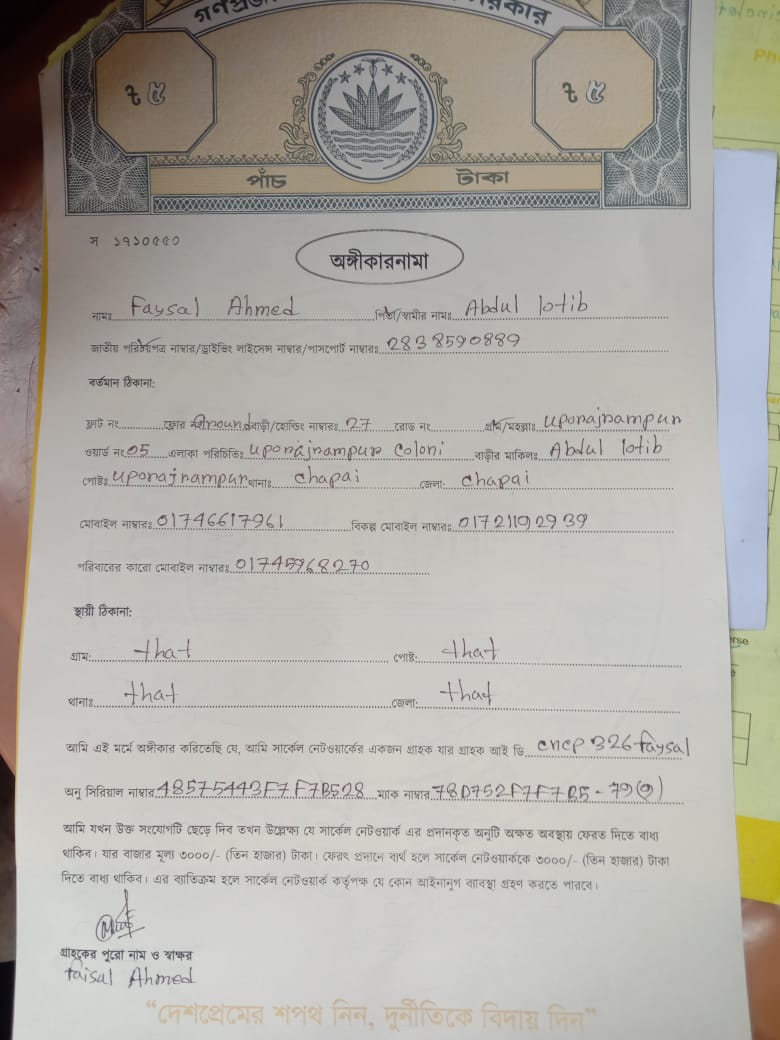 ৳ ৫
৳ ৫
পাঁচ টাকা
স ১৭১০৫৫০
অঙ্গীকারনামা
নামঃ Faysal Ahmed পিতা/স্বামীর নামঃ Abdul lotib
জাতীয় পরিচয়পত্র নাম্বার/ড্রাইভিং লাইসেন্স নাম্বার/পাসপোর্ট নাম্বারঃ 2838590889
বর্তমান ঠিকানা:
ফ্লাট নং ফ্লোর বাড়ী/হোল্ডিং নাম্বারঃ 27 রোড নং গ্রাম/মহল্লাঃ uporajrampur
ওয়ার্ড নংঃ 05 এলাকা পরিচিতিঃ uporajrampur coloni বাড়ীর মালিকঃ Abdul lotib
পোষ্টঃ uporajrampur থানাঃ chapai জেলা: chapai
মোবাইল নাম্বারঃ 01746617961 বিকল্প মোবাইল নাম্বারঃ 01721192939
পরিবারের কারো মোবাইল নাম্বারঃ
স্থায়ী ঠিকানা:
গ্রাম: that পোষ্ট: that
থানাঃ that জেলা: that
আমি এই মর্মে অঙ্গীকার করিতেছি যে, আমি সার্কেল নেটওয়ার্কের একজন গ্রাহক যার গ্রাহক আই ডি cncp326faysal
অনু সিরিয়াল নাম্বার 48575443F7F7B528 ম্যাক নাম্বার 78D752F7F7B5-79(9)
আমি যখন উক্ত সংযোগটি ছেড়ে দিব তখন উল্লেক্ষ্য যে সার্কেল নেটওয়ার্ক এর প্রদানকৃত অনুটি অক্ষত অবস্থায় ফেরত দিতে বাধ্য
থাকিব। যার বাজার মূল্য ৩০০০/- (তিন হাজার) টাকা। ফেরৎ প্রদানে ব্যর্থ হলে সার্কেল নেটওয়ার্ককে ৩০০০/- (তিন হাজার) টাকা
দিতে বাধ্য থাকিব। এর ব্যতিক্রম হলে সার্কেল নেটওয়ার্ক কর্তৃপক্ষ যে কোন আইনানুগ ব্যাবস্থা গ্রহণ করতে পারবে।
গ্রাহকের পুরো নাম ও স্বাক্ষর
faisal Ahmed
“দেশপ্রেমের শপথ নিন, দুর্নীতিকে বিদায় দিন”